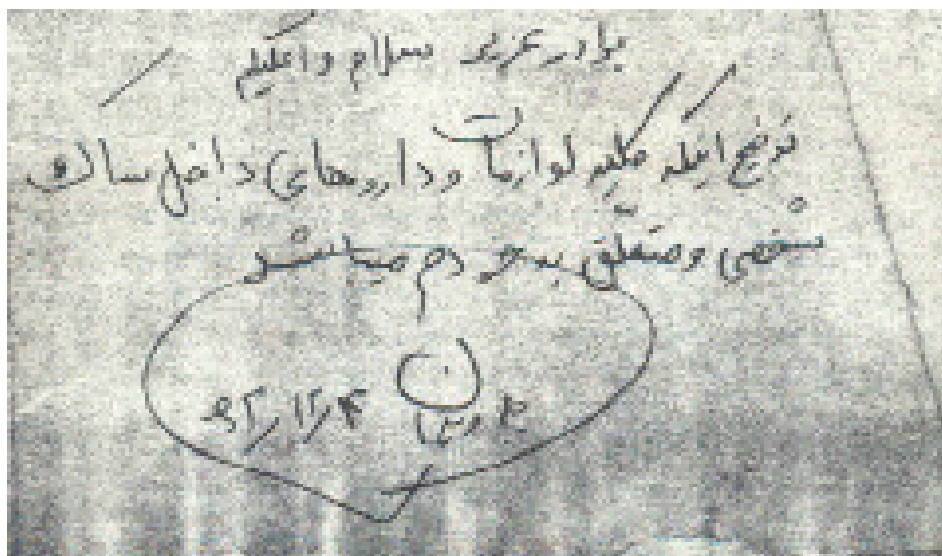 برادر عزیز سلام و علیکم
توضیح اینکه کلیه لوازمات و داروهای داخل ساک
شخصی و متعلق به خودم میباشد
۹۲/۱۲/۴